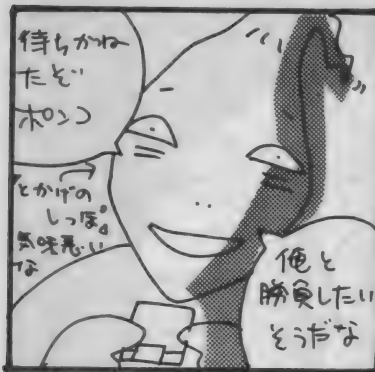 待ちかね
たぞ
ポンコ
とかげの
しっぽ。
気味悪い
な
俺と
勝負したい
そうだな